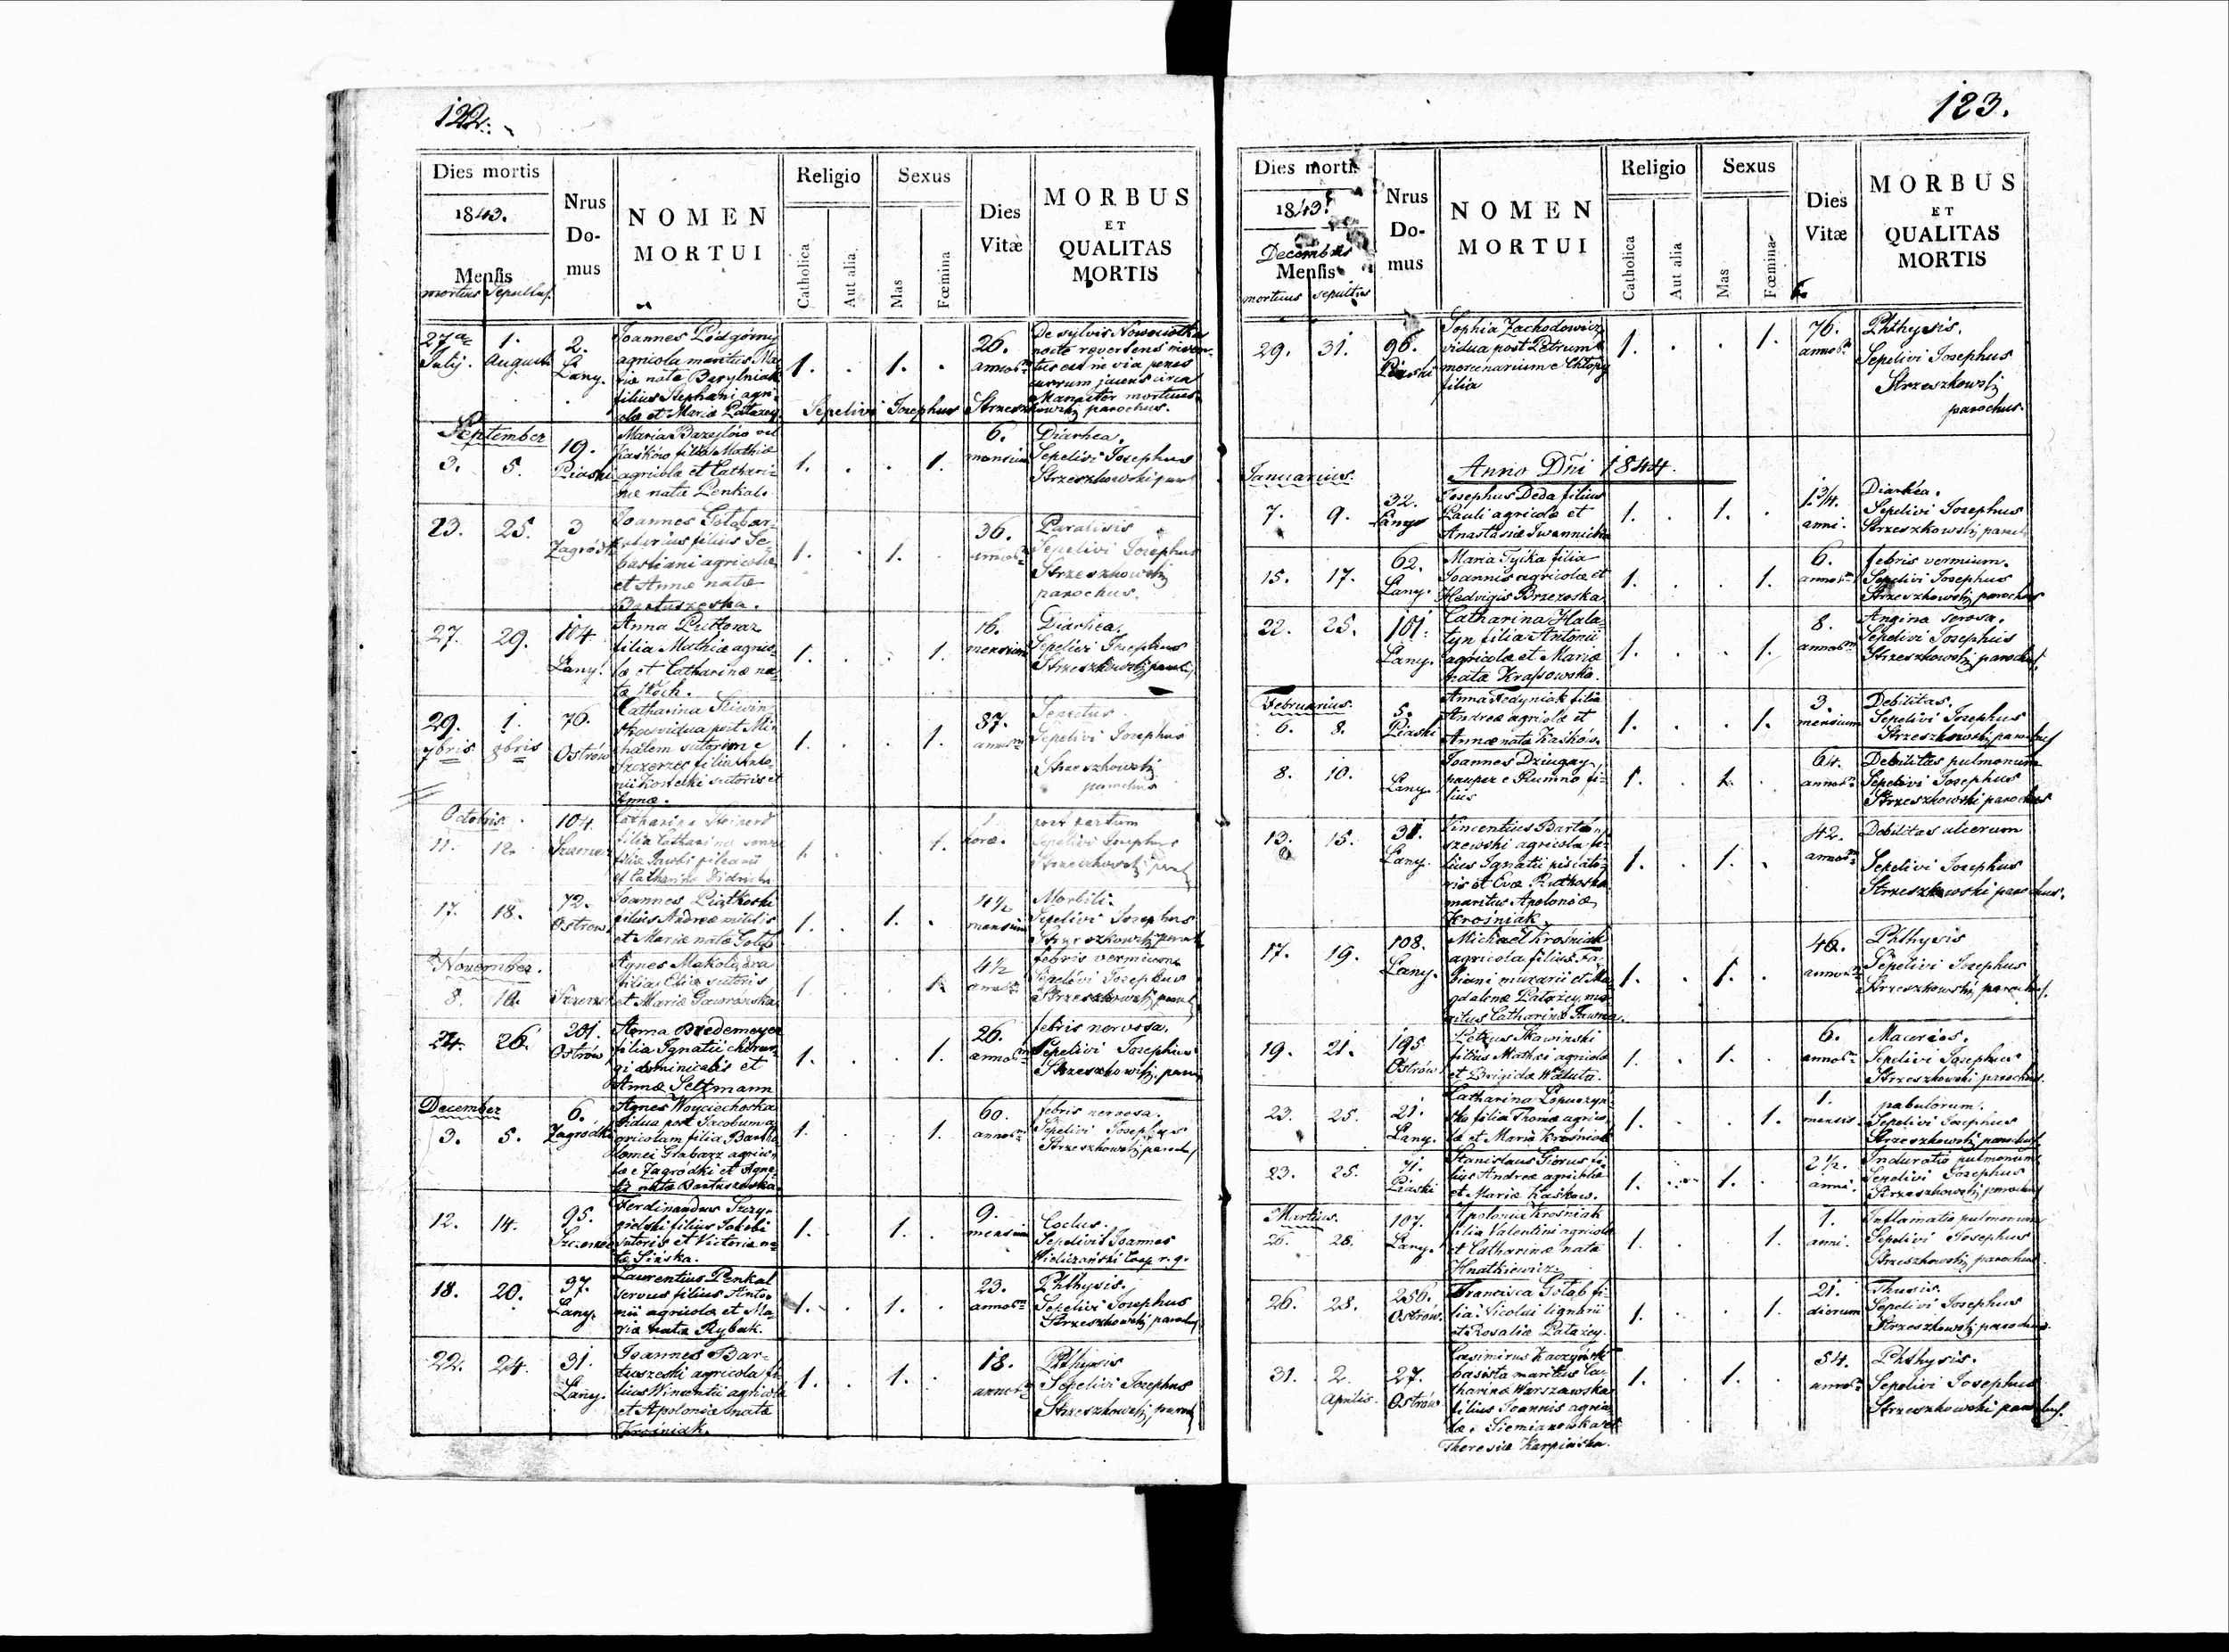 122.
Dies mortis
1843.
Mensis
mortuus Sepultus.
Nrus Do-mus
NOMEN MORTUI
Religio
Catholica
Aut alia
Sexus
Mas
Fœmina
Dies Vitæ
MORBUS ET QUALITAS MORTIS
27a Julij. 1. Augusti
2. Łany.
Joannes Podgórny
agricola maritus Ma-
riæ natæ Barylniak
filius Stephani agri-
colæ et Mariæ Pałazey.
1. . 1. .
26. annor.
De sylvis
nocte revertens inven-
tus est in via penes
currum jacens circa
mortuus
Sepelivi Josephus Strzeszkowski parochus.
September
3. 5.
19. Piaski
Maria Bazylów vel
Kaśków filia Mathiæ
agricolæ et Cathari-
næ natæ Penkal.
1. . . 1.
6. mensium
Diarhea.
Sepelivi Josephus
Strzeszkowski
23. 25.
3 Zagródki
Joannes Gołąbar-
filius Se-
bastiani agricolæ
et Annæ natæ
Bartuszeska.
1. . 1. .
36. annor.
Paralisis
Sepelivi Josephus
Strzeszkowski
parochus.
27. 29.
104 Łany.
Anna
filia Mathiæ agrico-
læ et Catharinæ na-
tæ Woch.
1. . . 1.
16. mensium
Diarhea.
Sepelivi Josephus
Strzeszkowski
29. 7bris 1. 8bris
76. Ostrów
Catharina
vidua post Mi-
chalem sutorem e
Szczerzec filia Anto-
nii Kostecki sutoris et
Annæ.
1. . . 1.
87. annor.
Senectus
Sepelivi Josephus
Strzeszkowski
parochus
Octobris.
11. 12.
104. Szczerzec
Catharina
filia Catharinæ
filiæ Jacobi
et Catharinæ
1. . . 1.
1 horæ.
post partum
Sepelivi Josephus
Strzeszkowski
17. 18.
72. Ostrów
Joannes Piątkoski
filius Andreæ militis
et Mariæ natæ Gołąb
1. . 1. .
4½ mensium
Morbili.
Sepelivi Josephus
Strzeszkowski
November.
8. 10.
Szczerzec
Agnes Makolądra
filia Eliæ sutoris
et Mariæ Gaworoska
1. . . 1.
4½ annor.
febris vermium
Sepelivi Josephus
Strzeszkowski
24. 26.
201. Ostrów
Anna Bredemeyer
filia Ignatii chirur-
gi dominicalis et
Annæ Seltmann
1. . . 1.
26. annor.
febris nervosa.
Sepelivi Josephus
Strzeszkowski
December
3. 5.
6. Zagródki
Agnes Woyciechoska
vidua post Jacobum a-
gricolam filia Bartho-
lomei Grabarz agrico-
læ e Zagrodki et Agne-
tis natæ Bartuszeska.
1. . . 1.
60. annor.
febris nervosa.
Sepelivi Josephus
Strzeszkowski
12. 14.
95. Szczerzec
Ferdinandus Szczy-
gielski filius Jakobi
sutoris et Victoriæ na-
tæ Sińska.
1. . 1. .
9. mensium
Coclus.
Sepelivit Joannes
Wieliczański Coop r. g.
18. 20.
97. Łany.
Laurentius Penkal
servus filius Anto-
nii agricolæ et Ma-
riæ natæ Rybak.
1. . 1. .
23. annor.
Phthysis.
Sepelivi Josephus
Strzeszkowski
22. 24.
31. Łany.
Joannes Bar-
tuszeski agricola fi-
lius Wincentii agricolæ
et Apoloniæ natæ
Krośniak.
1. . 1. .
18. annor.
Phthysis
Sepelivi Josephus
Strzeszkowski
123.
Dies mortis
1843.
Decembris
Mensis
mortuus sepultus
Nrus Do-mus
NOMEN MORTUI
Religio
Catholica
Aut alia
Sexus
Mas
Fœmina
Dies Vitæ
MORBUS ET QUALITAS MORTIS
29. 31.
96. Piaski
Sophia Zachodowicz
vidua post Petrum
mercenarium e Chłopy
filia
1. . . 1.
76. annor.
Phthysis.
Sepelivi Josephus
Strzeszkowski
parochus.
Januarius.
Anno Dñi 1844.
7. 9.
32. Łany
Josephus Deda filius
Pauli agricolæ et
Anastasiæ Iwannicka
1. . 1. .
1¾. anni.
Diarhea.
Sepelivi Josephus
Strzeszkowski
15. 17.
62. Łany.
Maria Tyika filia
Joannis agricolæ et
Hedvigis Brzezoska
1. . . 1.
6. annor.
febris vermium.
Sepelivi Josephus
Strzeszkowski parochus
22. 25.
101. Łany.
Catharina Hala-
tyn filia Antonii
agricolæ et Mariæ
natæ Krassowska.
1. . . 1.
8. annor.
Angina serosa.
Sepelivi Josephus
Strzeszkowski parochus.
Februarius.
6. 8.
5. Piaski
Anna Fedyniak filia
Andreæ agricolæ et
Annæ natæ Kaśków.
1. . . 1.
3. mensium
Debilitas.
Sepelivi Josephus
Strzeszkowski parochus
8. 10.
Łany.
Joannes Dziugay,
pauper e Rumno fi-
lius
1. . 1. .
64. annor.
Debilitas pulmonum
Sepelivi Josephus
Strzeszkowski parochus
13. 15.
31. Łany.
Vincentius Bartu-
szewski agricola fi-
lius Ignatii piscato-
ris et Evæ Rutkoska
maritus Apoloniæ
Krośniak.
1. . 1. .
42. annor.
Debilitas ulcerum
Sepelivi Josephus
Strzeszkowski parochus.
17. 19.
108. Łany.
Michael Krośniak
agricola filius Fa-
biani murarii et Ma-
gdalenæ Pałażey, ma-
ritus Catharinæ Fawna.
1. . 1. .
46. annor.
Phthysis
Sepelivi Josephus
Strzeszkowski parochus.
19. 21.
195. Ostrów
Petrus Skawiński
filius Mathei agricolæ
et Brigidæ Waluta.
1. . 1. .
6. annor.
Macories.
Sepelivi Josephus
Strzeszkowski parochus.
23. 25.
21. Łany.
Catharina Łopuszyn-
ska filia Thomæ agrico-
læ et Mariæ Krośniak
1. . . 1.
1. mensis.
pabulorum.
Sepelivi Josephus
Strzeszkowski parochus
23. 25.
71. Piaski
Stanislaus Giorus fi-
lius Andreæ agricolæ
et Mariæ Kaśkow.
1. . 1. .
2½. anni.
Induratio pulmonum
Sepelivi Josephus
Strzeszkowski parochus
Martius.
26. 28.
107. Łany.
Apolonia Krośniak
filia Valentini agricolæ
et Catharinæ natæ
Hnatkiewicz.
1. . . 1.
1. anni.
Inflamatio pulmonum
Sepelivi Josephus
Strzeszkowski parochus
26. 28.
256. Ostrów.
Francisca Gołąb fi-
lia Nicolai lignarii
et Rosaliæ Pałażey.
1. . . 1.
21. dierum
Thusis.
Sepelivi Josephus
Strzeszkowski parochus.
31. 2. Aprilis.
27. Ostrów
Casimirus Kaczyński
basista maritus Ca-
tharinæ Warszawska
filius Joannis agrico-
læ e Siemianowka et
Theresiæ Karpińska.
1. . 1. .
54. annor.
Phthysis.
Sepelivi Josephus
Strzeszkowski parochus.